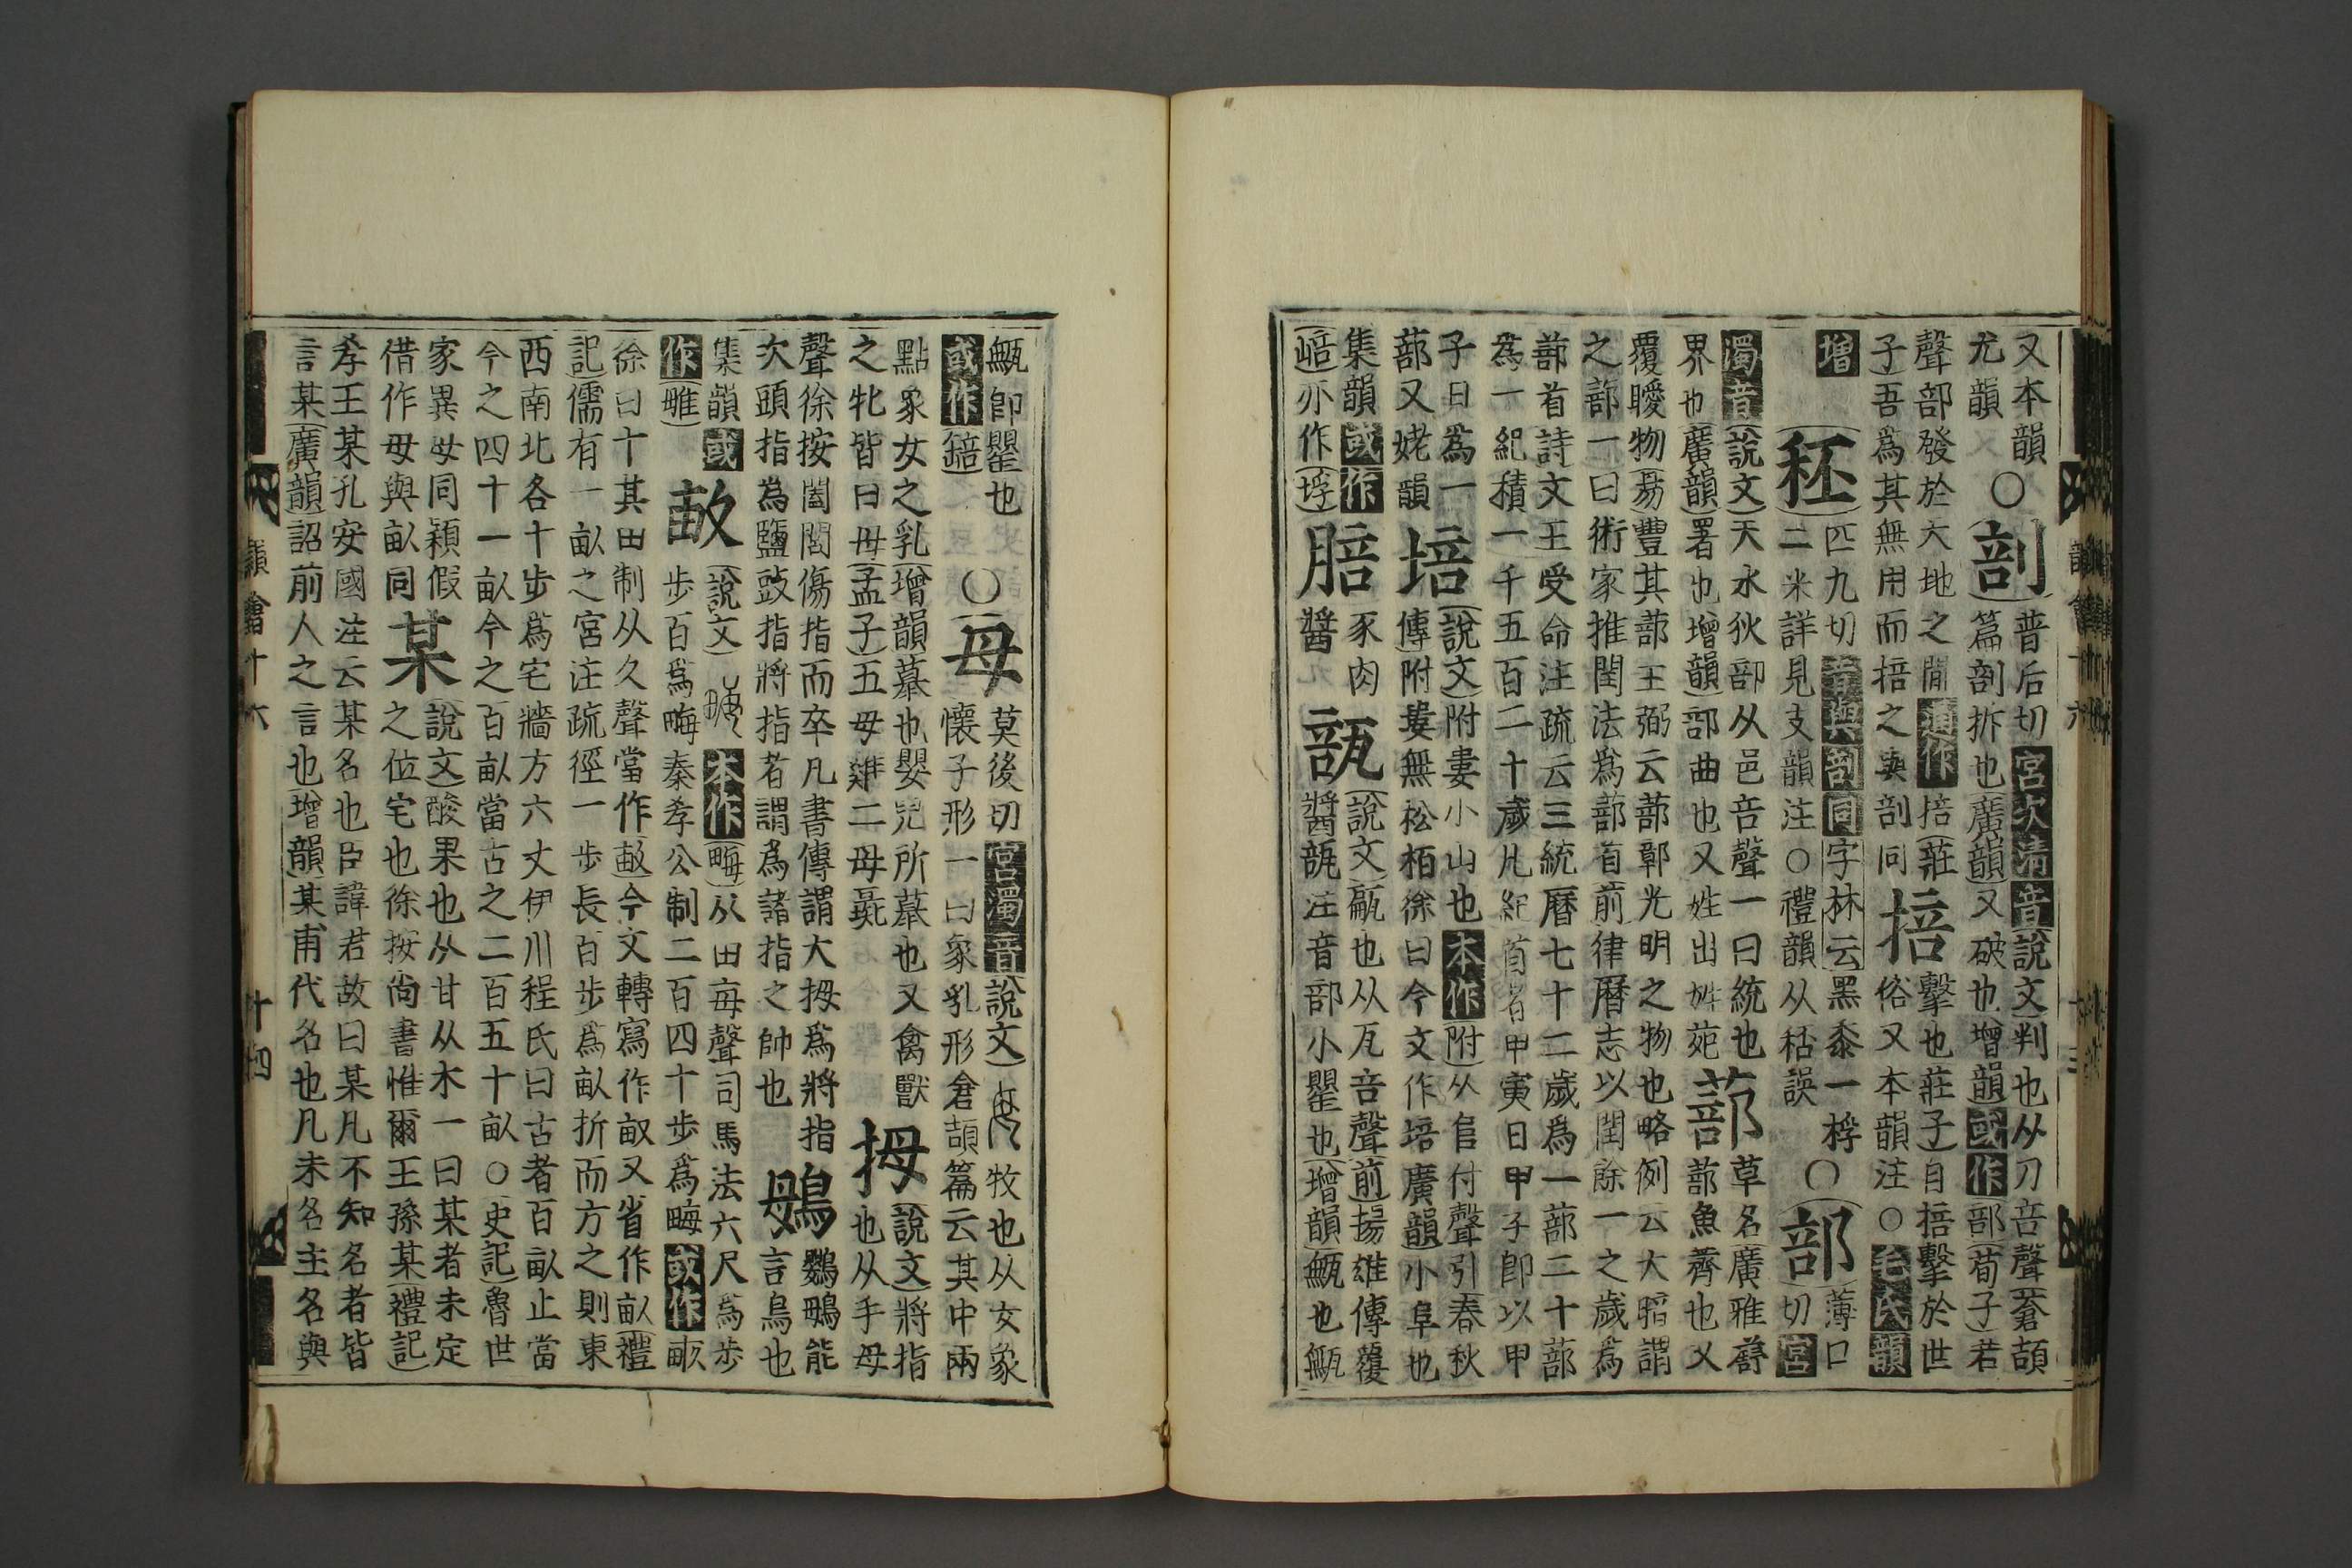 又本韻
尤韻〇剖普后切宮次清音說文判也从刀咅聲蒼頡
篇剖拆也廣韻又破也增韻或作部荀子若
聲部發於天地之閒通作掊莊
子吾爲其無用而掊之與剖同掊擊也莊子自掊擊於世
俗又本韻注〇毛氏韻
增秠匹九切音與剖同字林云黑黍一桴
二米詳見支韻注〇禮韻从秙誤〇部薄口
切宮
濁音說文天水狄部从邑咅聲一曰統也
界也廣韻署也增韻部曲也又姓出姓苑蔀草名廣雅
蔀魚薺也又
覆曖物易豐其蔀王弼云蔀鄣光明之物也略例云大暗謂
之蔀一曰術家推閏法爲蔀首前律曆志以閏餘一之歲爲
蔀首詩文王受命注疏云三統曆七十二歲爲一蔀二十蔀
爲一紀積一千五百二十歲凡紀首者甲寅日甲子卽以甲
子曰爲一
蔀又姥韻培說文附婁小山也本作附从𨸏付聲引春秋
傳附婁無松栢徐曰今文作培廣韻小阜也
集韻或作
㟝亦作垺䏽豕肉
醬瓿說文甂也从瓦咅聲前揚雄傳覆
醬瓿注音部小罌也增韻甒也甒
甒卽罌也
或作䪔〇母莫後切宮濁音說文牧也从女象
懷子形一曰象乳形倉頡篇云其中兩
點象女之乳增韻慕也嬰兒所慕也又禽獸
之牝皆曰母孟子五母雞二母彘拇說文將指
也从手母
聲徐按闔閭傷指而卒凡書傳謂大拇爲將指
次頭指爲鹽豉指將指者謂爲諸指之帥也鴟鸚䳇能
言鳥也
集韻或
作䧅畝說文畮本作畮从田每聲司馬法六尺爲步
步百爲畮秦孝公制二百四十步爲畮或作畞
徐曰十其田制从久聲當作畝今文轉寫作畝又省作畒禮
記儒有一畒之宮注疏徑一步長百步爲畒折而方之則東
西南北各十步爲宅牆方六丈伊川程氏曰古者百畒止當
今之四十一畒今之百畒當古之二百五十畒〇史記魯世
家異母同穎假
借作母與畒同某說文酸果也从甘从木一曰某者未定
之位宅也徐按尚書惟爾王孫某禮記
孝王某孔安國注云某名也臣諱君故曰某凡不知名者皆
言某廣韻詔前人之言也增韻某甫代名也凡未名主名與
韻會十六
十四